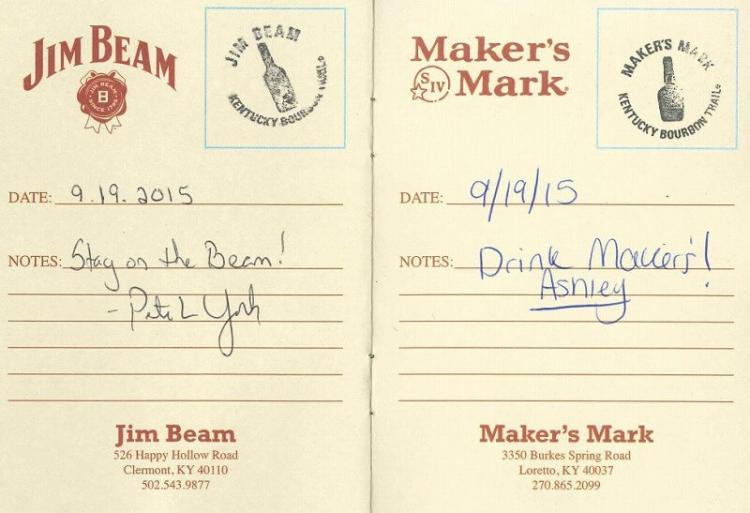 JIM BEAM
JIM BEAM
B
SINCE 1795
JIM BEAM
KENTUCKY BOURBON TRAIL®
DATE: 9.19.2015
NOTES: Stay on the Beam!
- Pete L York
Jim Beam
526 Happy Hollow Road
Clermont, KY 40110
502.543.9877
Maker's
SIV Mark®
MAKER'S MARK
KENTUCKY BOURBON TRAIL®
DATE: 9/19/15
NOTES: Drink Maker's!
Ashley
Maker's Mark
3350 Burkes Spring Road
Loretto, KY 40037
270.865.2099